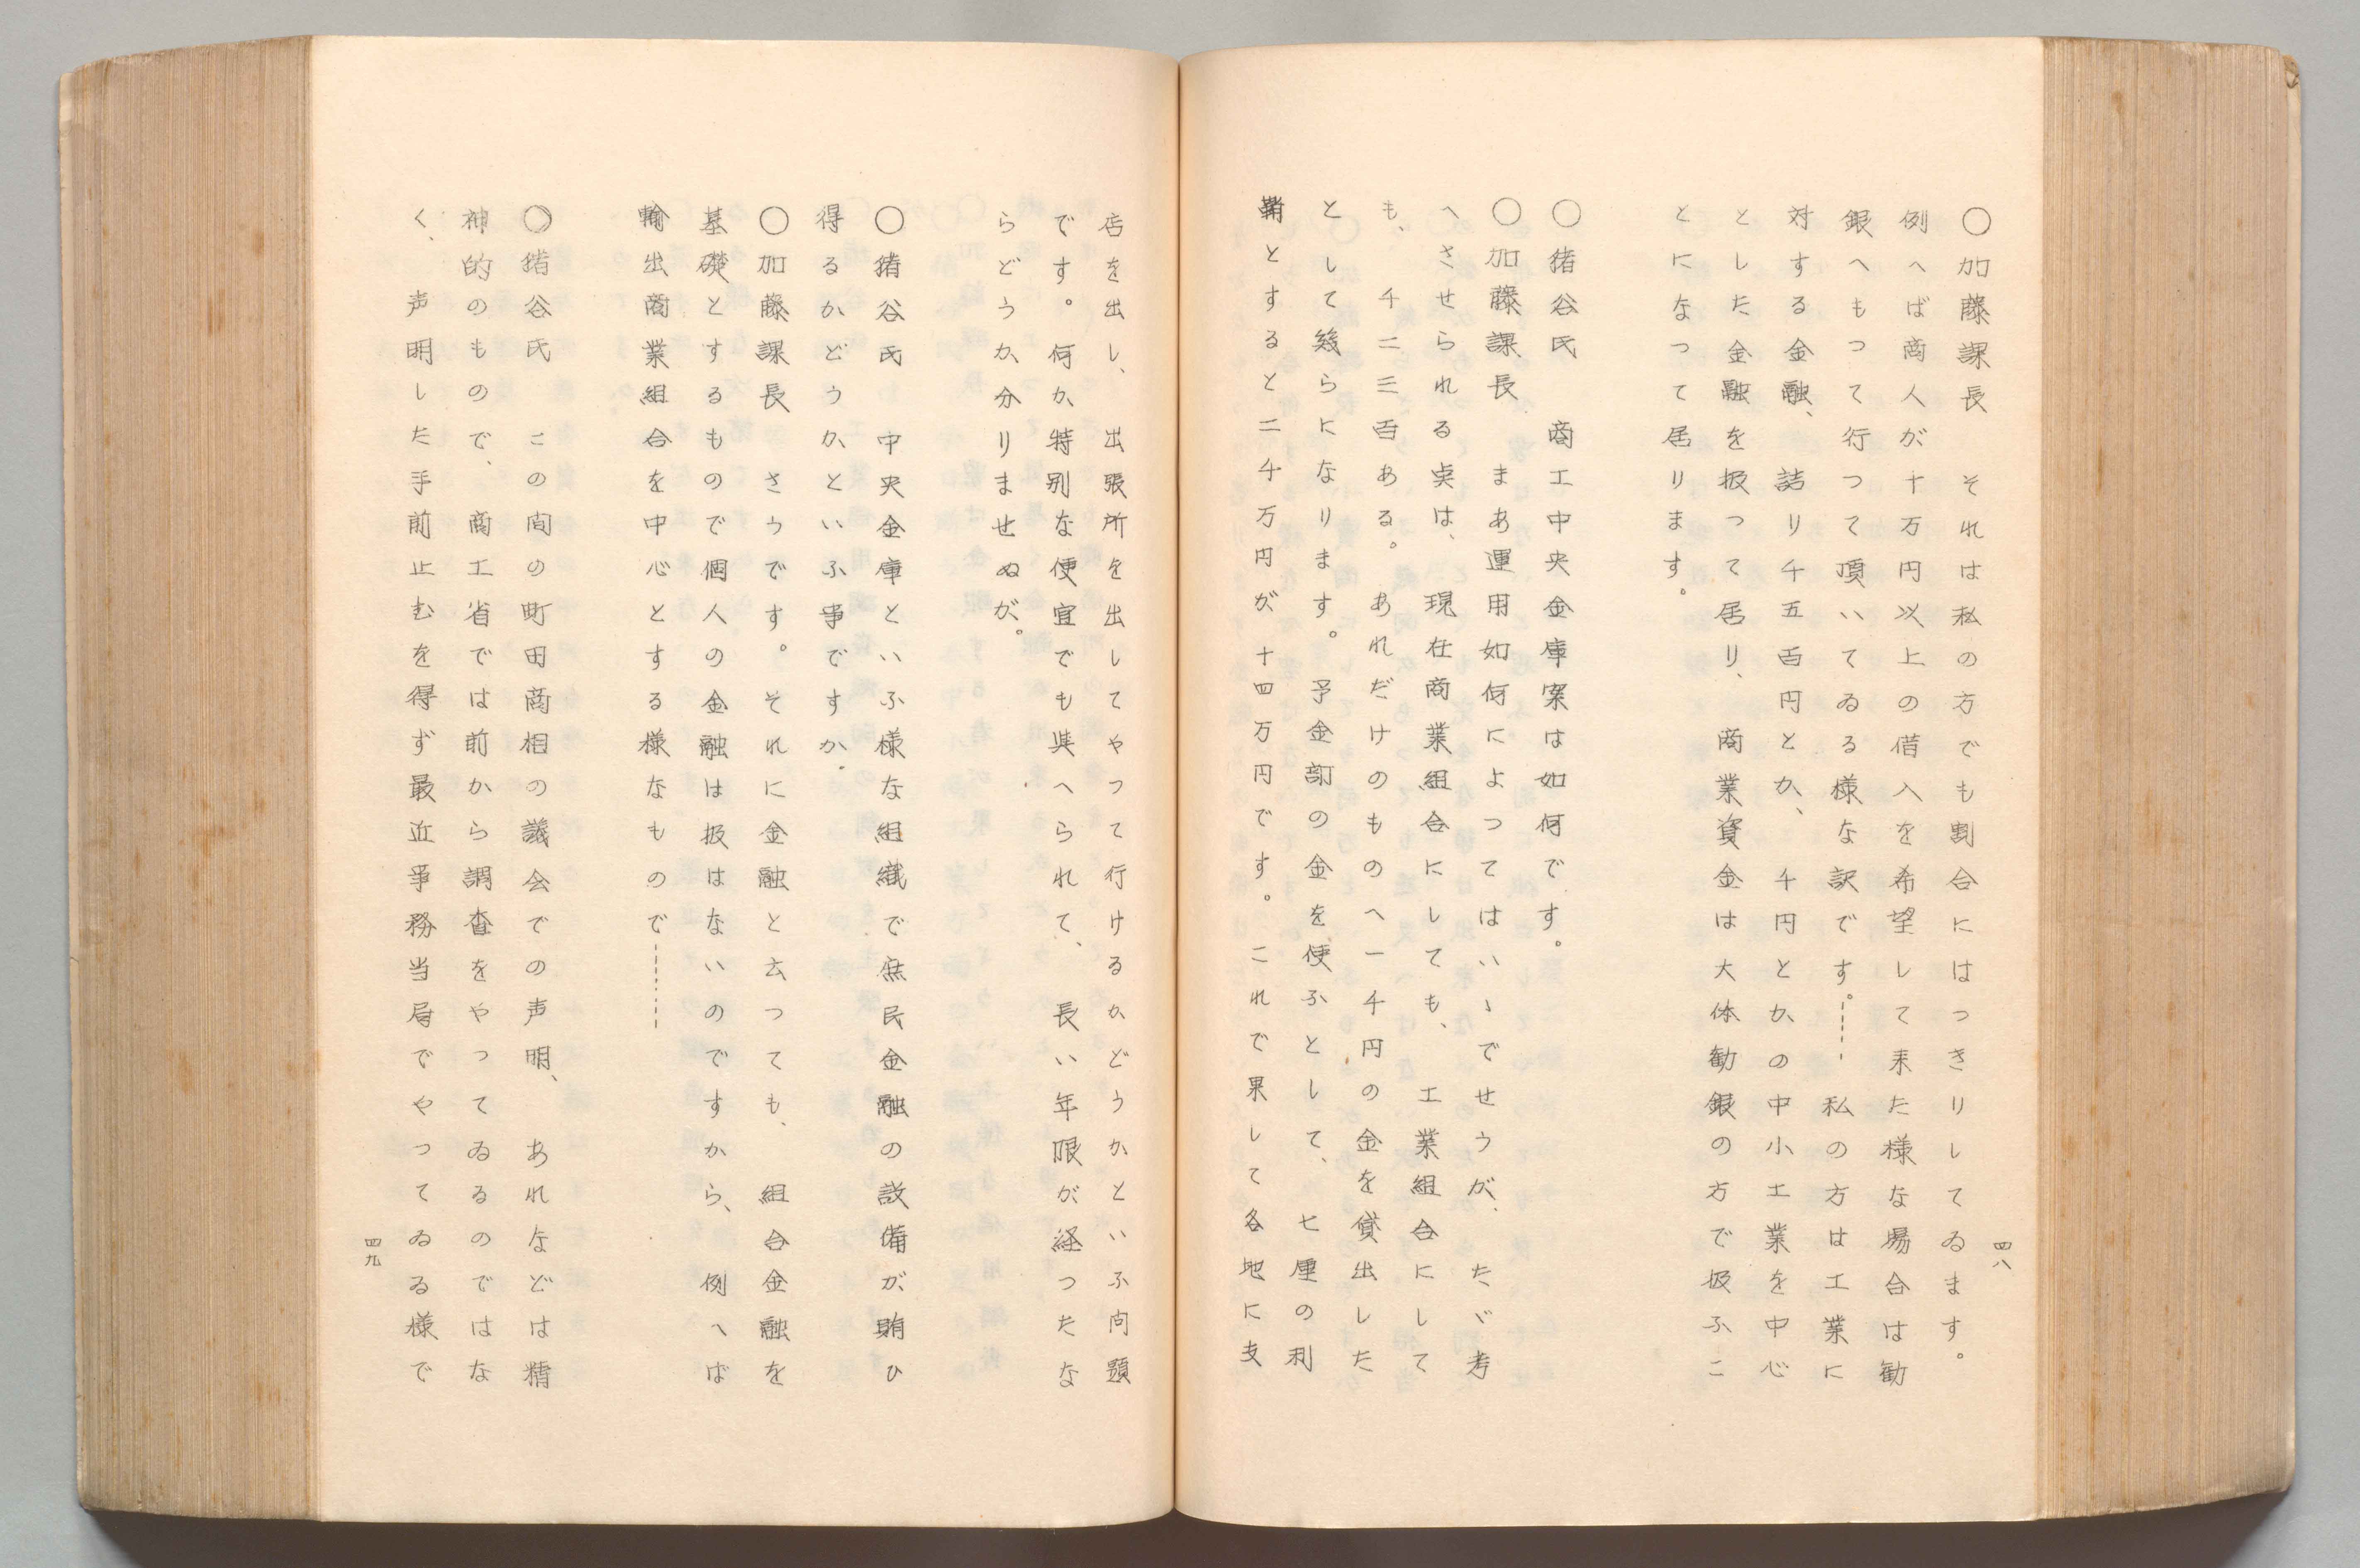 四八
○加藤課長　それは私の方でも割合にはつきりしてゐます。
例へば商人が十万円以上の借入を希望して来た様な場合は勧
銀へもつて行つて頂いてゐる様な訳です。……私の方は工業に
対する金融、詰り千五百円とか、千円とかの中小工業を中心
とした金融を扱つて居り、商業資金は大体勧銀の方で扱ふこ
とになつて居ります。
○猪谷氏　商工中央金庫案は如何です。
○加藤課長　まあ運用如何によつてはいゝでせうが、たゞ考
へさせられる点は、現在商業組合にしても、工業組合にして
も、千二三百ある。あれだけのものへ一千円の金を貸出した
として幾らになります。予金部の金を使ふとして、七厘の利
鞘とすると二千万円が十四万円です。これで果して各地に支
店を出し、出張所を出してやつて行けるかどうかといふ問題
です。何か特別な便宜でも与へられて、長い年限が経つたな
らどうか分りませぬが。
○猪谷氏　中央金庫といふ様な組織で庶民金融の設備が賄ひ
得るかどうかといふ事ですか。
○加藤課長　さうです。それに金融と云つても、組合金融を
基礎とするもので個人の金融は扱はないのですから、例へば
輸出商業組合を中心とする様なもので……
○猪谷氏　この間の町田商相の議会での声明、あれなどは精
神的のもので、商工省では前から調査をやつてゐるのではな
く、声明した手前止むを得ず最近事務当局でやつてゐる様で
四九